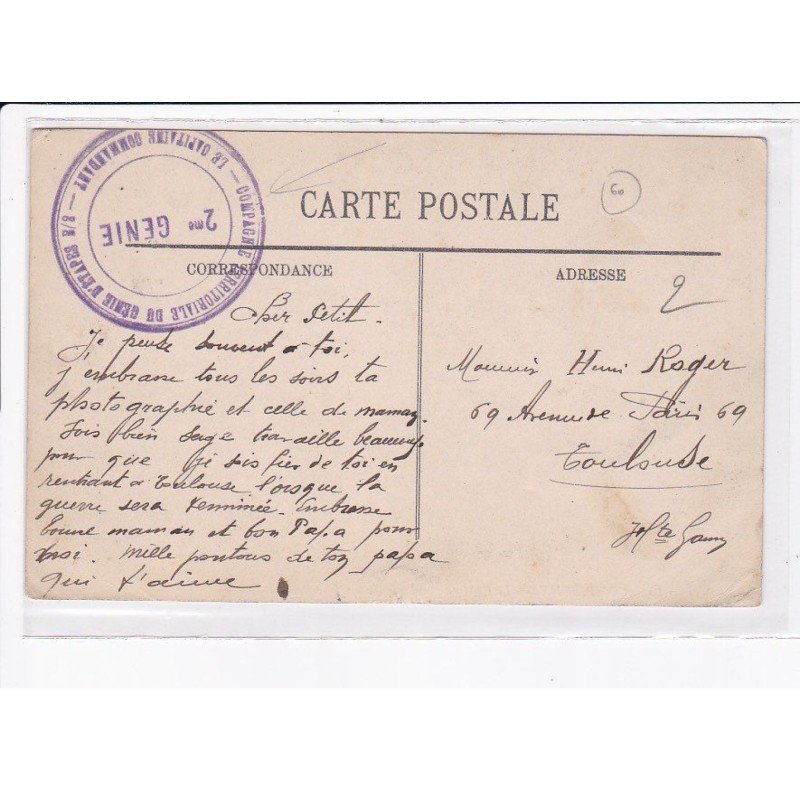 COMPAGNIE TERRITORIALE DU GENIE D'ETAPES — 8/5 — LE CAPITAINE COMMANDANT —
2me GENIE
60
CARTE POSTALE
CORRESPONDANCE
ADRESSE
2
Cher Petit.
Je pense souvent à toi,
j'embrasse tous les soirs ta
photographie et celle de maman.
Sois bien sage travaille beaucoup
pour que je sois fier de toi en
rentrant à Toulouse lorsque la
guerre sera terminée. Embrasse
bonne maman et bon Papa pour
moi. Mille poutous de ton papa
qui t'aime
Monsieur Henri Roger
69 Avenue de Paris 69
Toulouse
Hte Garne